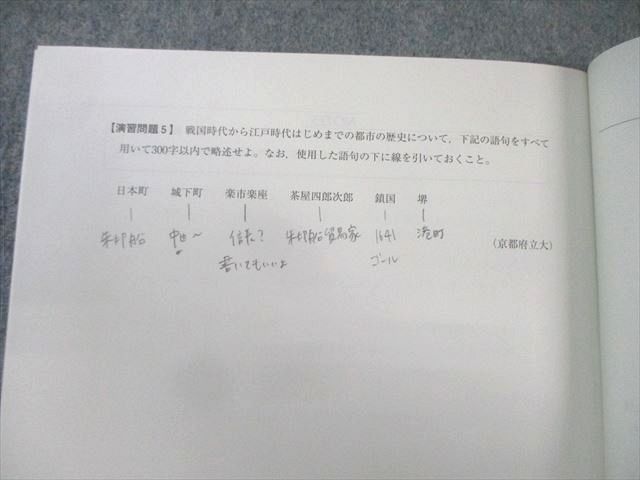 【演習問題5】 戦国時代から江戸時代はじめまでの都市の歴史について，下記の語句をすべて
用いて300字以内で略述せよ。なお，使用した語句の下に線を引いておくこと。
日本町 城下町 楽市楽座 茶屋四郎次郎 鎖国 堺
朱印船 中世〜 信長？ 朱印船貿易家 1641 港町
(京都府立大)
書いてもいいよ ゴール